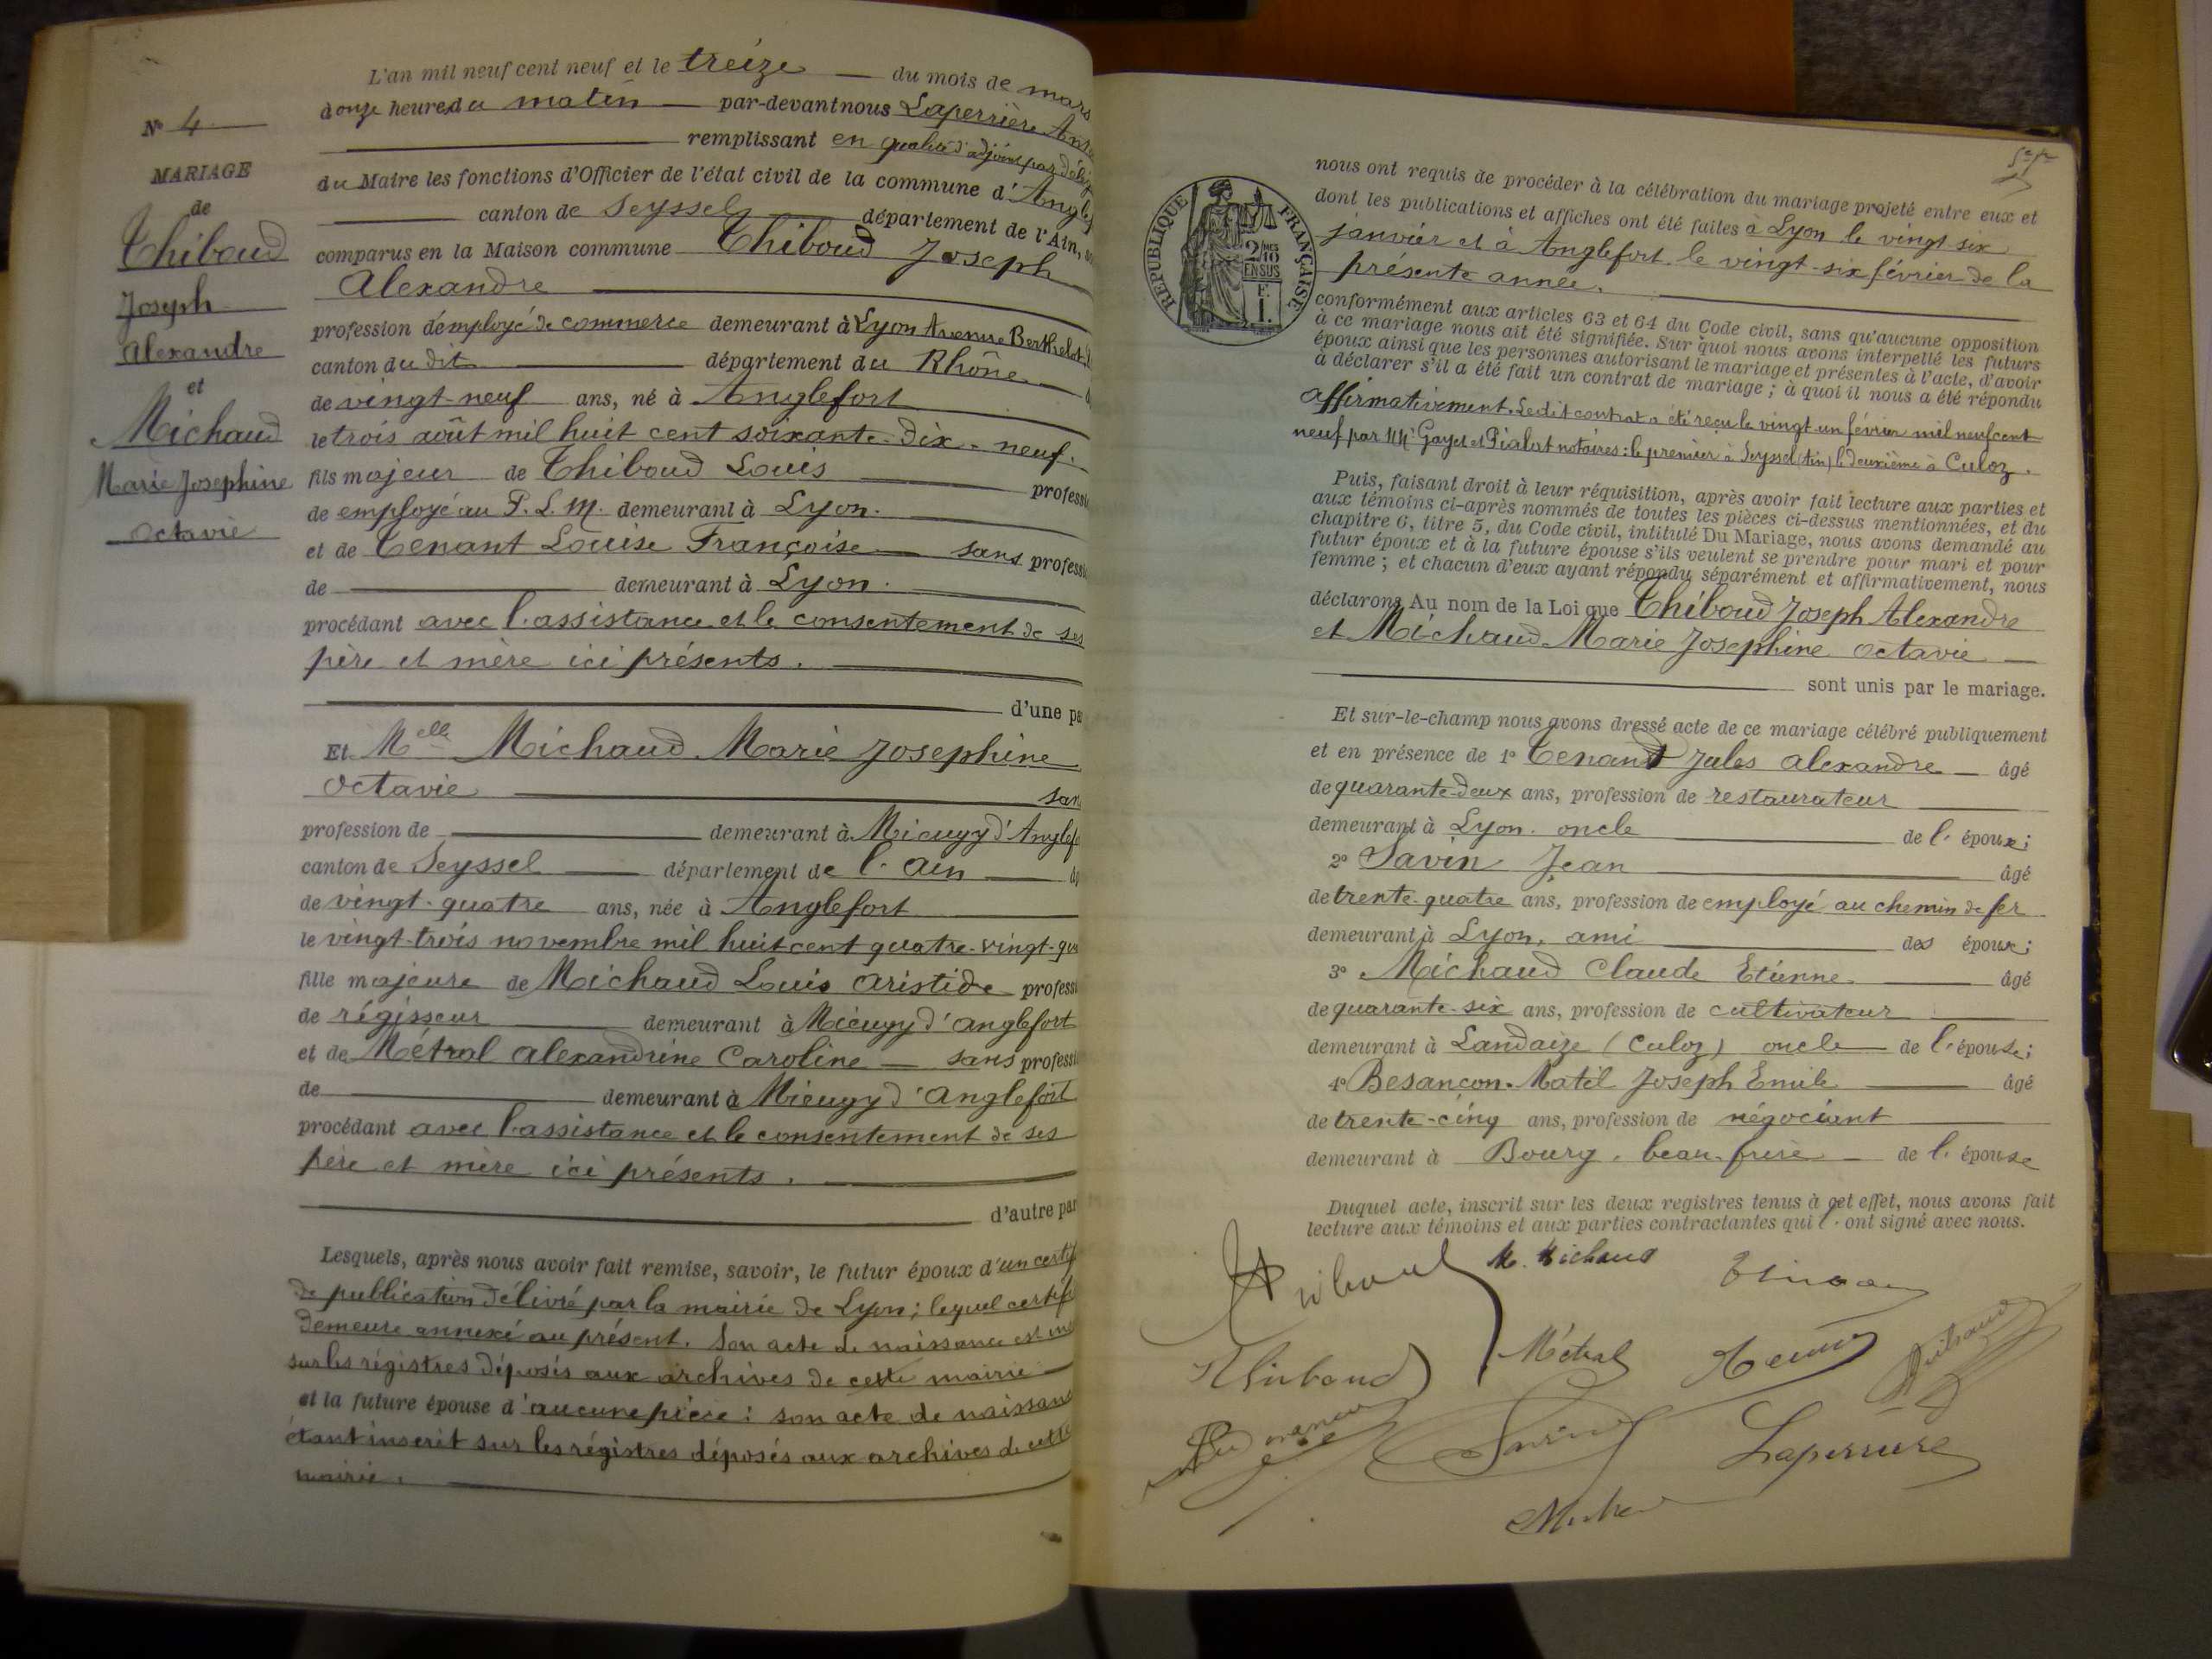 N° 4
MARIAGE
de
Thiboud
Joseph
Alexandre
et
Michaud
Marie Josephine
Octavie
L'an mil neuf cent neuf et le treize du mois de mars
à onze heures du matin par-devant nous Laperrière
remplissant en qualité d'adjoint par
du Maire les fonctions d'Officier de l'état civil de la commune d'
canton de Seyssel département de l'Ain,
comparus en la Maison commune Thiboud Joseph
Alexandre
profession d'employé de commerce demeurant à Lyon Avenue Berthelot
canton du dit département du Rhône
de vingt-neuf ans, né à Anglefort
le trois août mil huit cent soixante-dix-neuf.
fils majeur de Thiboud Louis
de employé au P. L. M. demeurant à Lyon.
et de Tenant Louise Françoise sans
de demeurant à Lyon.
procédant avec l'assistance et le consentement de ses
père et mère ici présents.
d'une
Et Melle Michaud Marie Josephine
Octavie
profession de demeurant à Mieugy d'
canton de Seyssel département de l'Ain
de vingt-quatre ans, née à Anglefort
le vingt-trois novembre mil huit cent quatre-vingt-
fille majeure de Michaud Louis Aristide
de régisseur demeurant à Mieugy d'Anglefort
et de Métral Alexandrine Caroline sans
de demeurant à Mieugy d'Anglefort
procédant avec l'assistance et le consentement de ses
père et mère ici présents.
d'autre
Lesquels, après nous avoir fait remise, savoir, le futur époux d'un
de publication délivré par la mairie de Lyon ; lequel
demeure annexé au présent. Son acte de naissance est
sur les régistres déposés aux archives de cette mairie
et la future épouse d'aucune pièce : son acte de
étant inscrit sur les régistres déposés aux archives de cette
mairie.
RÉPUBLIQUE FRANÇAISE
2/10
EN SUS
F.
1.
nous ont requis de procéder à la célébration du mariage projeté entre eux et
dont les publications et affiches ont été faites à Lyon le vingt-six
janvier et à Anglefort le vingt-six février de la
présente année.
conformément aux articles 63 et 64 du Code civil, sans qu'aucune opposition
à ce mariage nous ait été signifiée. Sur quoi nous avons interpellé les futurs
époux ainsi que les personnes autorisant le mariage et présentes à l'acte, d'avoir
à déclarer s'il a été fait un contrat de mariage ; à quoi il nous a été répondu
affirmativement. Ledit contrat a été reçu le vingt-un février mil neuf cent
neuf par MMes Gayet et notaires : le premier à Seyssel (Ain) le deuxième à Culoz.
Puis, faisant droit à leur réquisition, après avoir fait lecture aux parties et
aux témoins ci-après nommés de toutes les pièces ci-dessus mentionnées, et du
chapitre 6, titre 5, du Code civil, intitulé Du Mariage, nous avons demandé au
futur époux et à la future épouse s'ils veulent se prendre pour mari et pour
femme ; et chacun d'eux ayant répondu séparément et affirmativement, nous
déclarons Au nom de la Loi que Thiboud Joseph Alexandre
et Michaud Marie Josephine Octavie
sont unis par le mariage.
Et sur-le-champ nous avons dressé acte de ce mariage célébré publiquement
et en présence de 1° Tenant Jules Alexandre âgé
de quarante-deux ans, profession de restaurateur
demeurant à Lyon. oncle de l'époux ;
2° Savin Jean âgé
de trente-quatre ans, profession de employé au chemin de fer
demeurant à Lyon, ami des époux ;
3° Michaud Claude Etienne âgé
de quarante-six ans, profession de cultivateur
demeurant à Landaize (Culoz) oncle de l'épouse ;
4° Besançon-Matil Joseph Emile âgé
de trente-cinq ans, profession de négociant
demeurant à Bourg. beau-frère de l'épouse
Duquel acte, inscrit sur les deux registres tenus à cet effet, nous avons fait
lecture aux témoins et aux parties contractantes qui l'ont signé avec nous.
Thiboud M. Michaud
Thiboud Métral Tenant Thiboud
Savin Laperrière